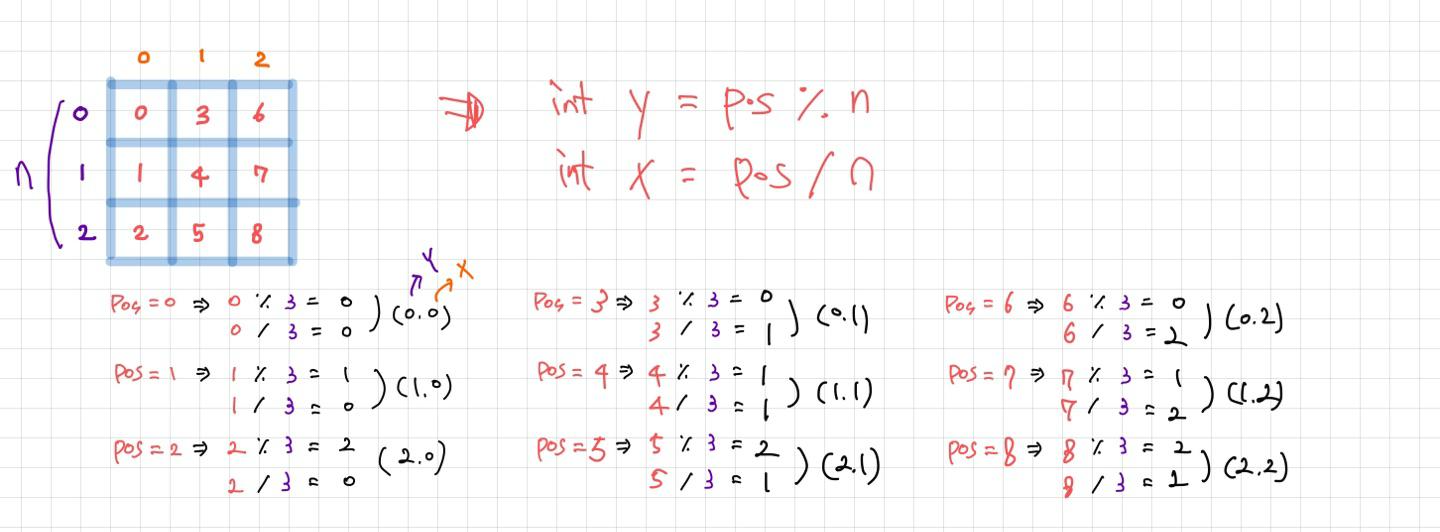 0 1 2
0 0 3 6
int y = pos % n
n 1 1 4 7
int x = pos / n
2 2 5 8
Y X
pos = 0 ⇒ 0 % 3 = 0
0 / 3 = 0 ) (0.0)
pos = 1 ⇒ 1 % 3 = 1
1 / 3 = 0 ) (1.0)
pos = 2 ⇒ 2 % 3 = 2
2 / 3 = 0 (2.0)
pos = 3 ⇒ 3 % 3 = 0
3 / 3 = 1 ) (0.1)
pos = 4 ⇒ 4 % 3 = 1
4 / 3 = 1 ) (1.1)
pos = 5 ⇒ 5 % 3 = 2
5 / 3 = 1 ) (2.1)
pos = 6 ⇒ 6 % 3 = 0
6 / 3 = 2 ) (0.2)
pos = 7 ⇒ 7 % 3 = 1
7 / 3 = 2 ) (1.2)
pos = 8 ⇒ 8 % 3 = 2
8 / 3 = 2 ) (2.2)